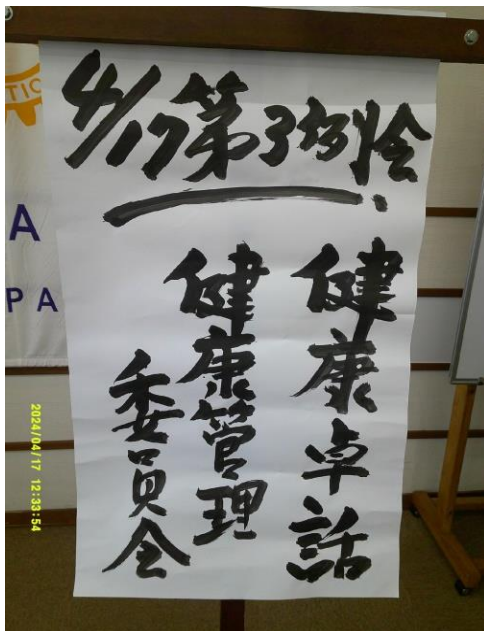 4/17第3例会
健康卓話
健康管理
委員会
TIO
A
PA
2024/04/17 12:33:54